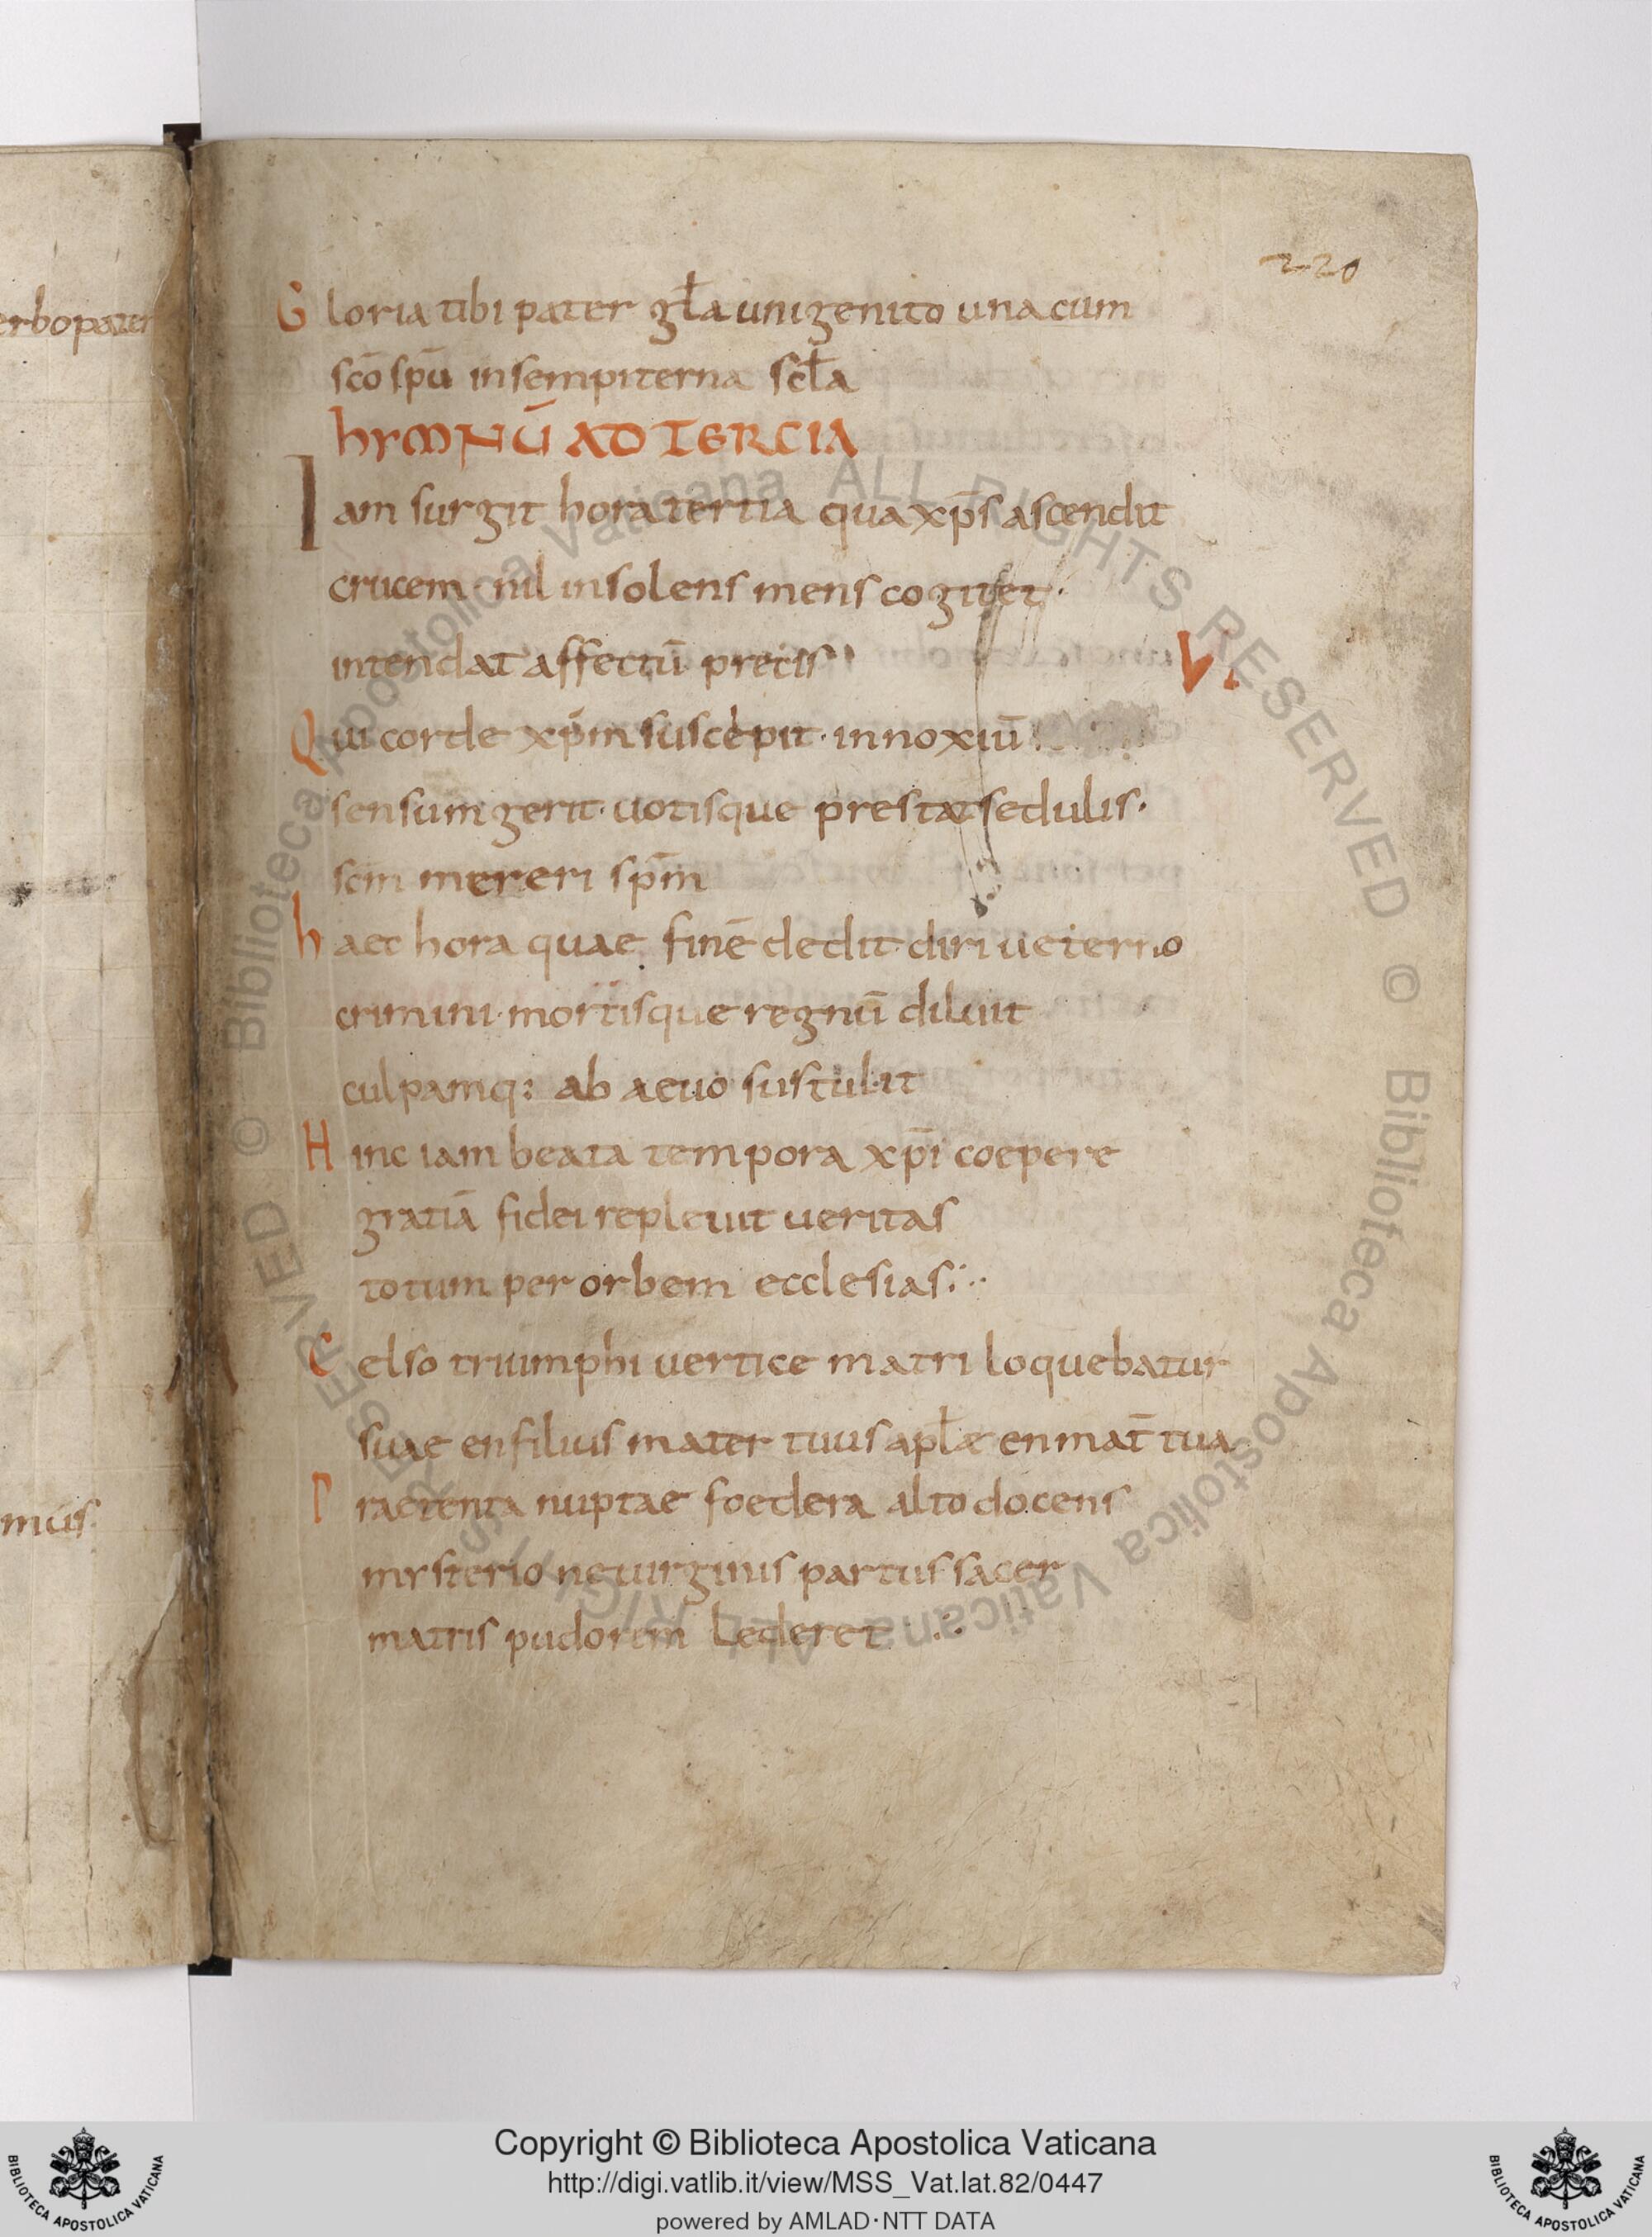 220
Gloria tibi pater gl̄a unigenito una cum
sc̄o sp̄u in sempiterna scl̄a
hymNū AD TERCIA
Iam surgit hora tertia qua xp̄s ascendit
crucem · nil insolens mens cogitet ·
intendat affectū precis
VI
Qui corde xp̄m suscepit · innoxiū
sensum gerit · uotisque prestat sedulis ·
sc̄m mereri sp̄m
haec hora quae finē dedit diri ueterno
crimini · mortisque regnū diluit
culpamq: ab aeuo sustulit
Hinc iam beata tempora xp̄i coepere
gratiā fidei repleuit ueritas
totum per orbem ecclesias
Celso triumphi uertice matri loquebatur
suae en filius mater tuus apl̄æ en mat̄ tua
Praetenta nuptae foedera alto docens
mysterio ne uirginis partus sacer
matris pudorem lederet
erbo pater
mus
© Biblioteca Apostolica Vaticana ALL RIGHTS RESERVED © Biblioteca Apostolica Vaticana ALL RIGHTS RESERVED
Copyright © Biblioteca Apostolica Vaticana
http://digi.vatlib.it/view/MSS_Vat.lat.82/0447
powered by AMLAD·NTT DATA
BIBLIOTECA APOSTOLICA VATICANA
BIBLIOTECA APOSTOLICA VATICANA